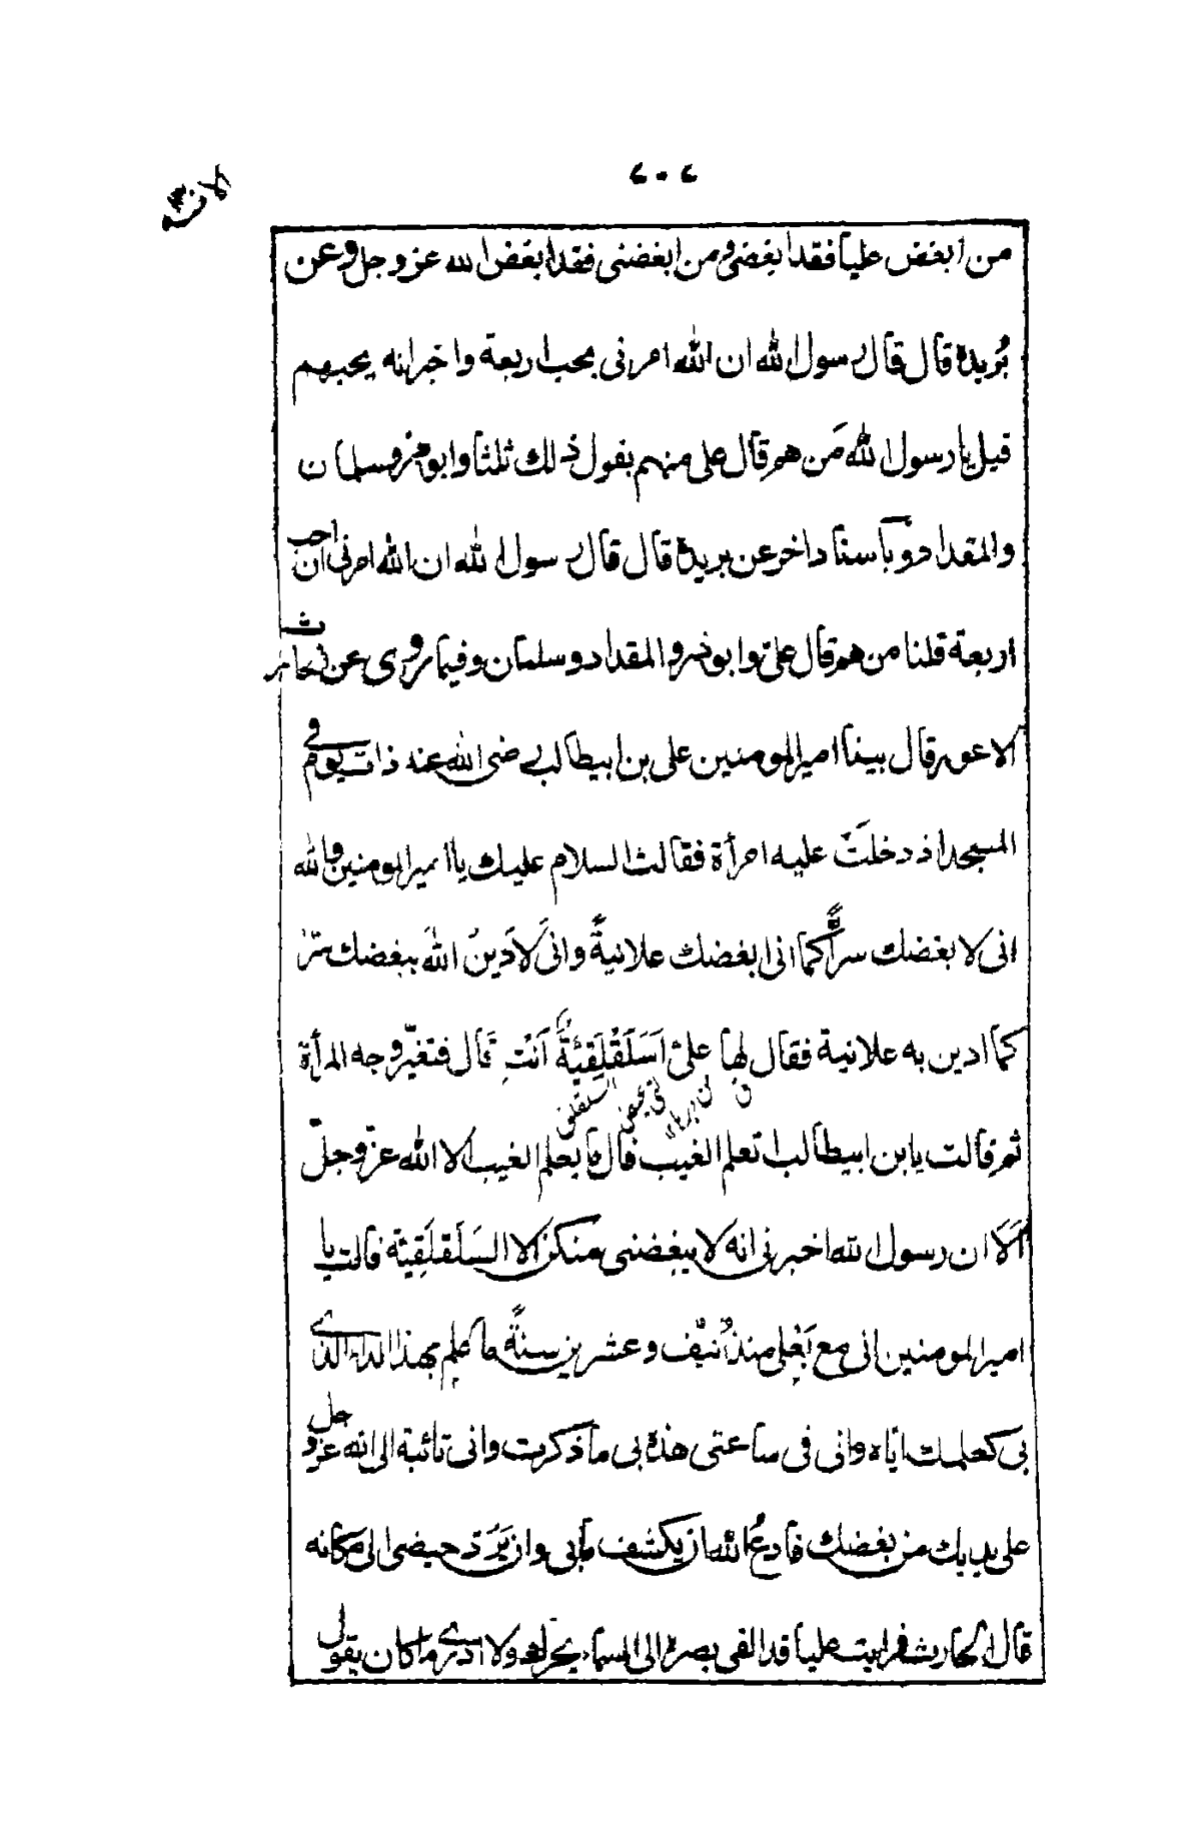 ٤٠٤
من ابغض عليا فقد ابغضنى ومن ابغضنى فقد ابغض الله عز وجل وعن
بُريدة قال قال رسول الله ان الله امرنى بحب اربعة واخبرانه يحبهم
قيل يا رسول الله مَن هم قال على منهم يقول ذلك ثلثا وابوذر وسلمان
والمقداد وبآسناد اخر عن بريدة قال قال رسول الله ان الله امرنى ان احب
اربعة قلنا من هم قال علىّ وابوذر والمقداد وسلمان وفيما روى عن الحارث
الاعور قال بينا امير المومنين على بن ابيطالب رضى الله عنه ذات يوم فى
المسجد اذ دخلَتْ عليه امرأة فقالت السلام عليك يا امير المومنين والله
انى لا بغضك سراً كما انى ابغضك علانيةً وانى لَادَينُ اللهَ ببغضك سرّا
كما ادين به علانية فقال لها علىّ اَسَلَقْلَقِيَّةٌ اَنْتِ قال فتغيّر وجه المرأة
ثم قالت يا بن ابيطالب اتعلم الغيب قال ما يعلم الغيب الا الله عزّ وجلّ
اَلَا ان رسول الله اخبرنى انه لا يبغضنى منكن الا السَلَقلَقِيّة قالت يا
امير المومنين انى مع بَعْلى منذ نَيّف وعشرين سنةً ما علم بهذا الداء الذى
بى كعلمك ايّاه وانى فى ساعتى هذه بى ما ذكرت وانى تائبة الى الله عز وجل
على يديك من بغضك فادعُ الله ان يكشف ما بى وان يَرُدّ حيضى الى مكانه
قال الحارث فرايت عليا قد القى بصره الى السماء يحرك ولا ادرى ما كان يقول